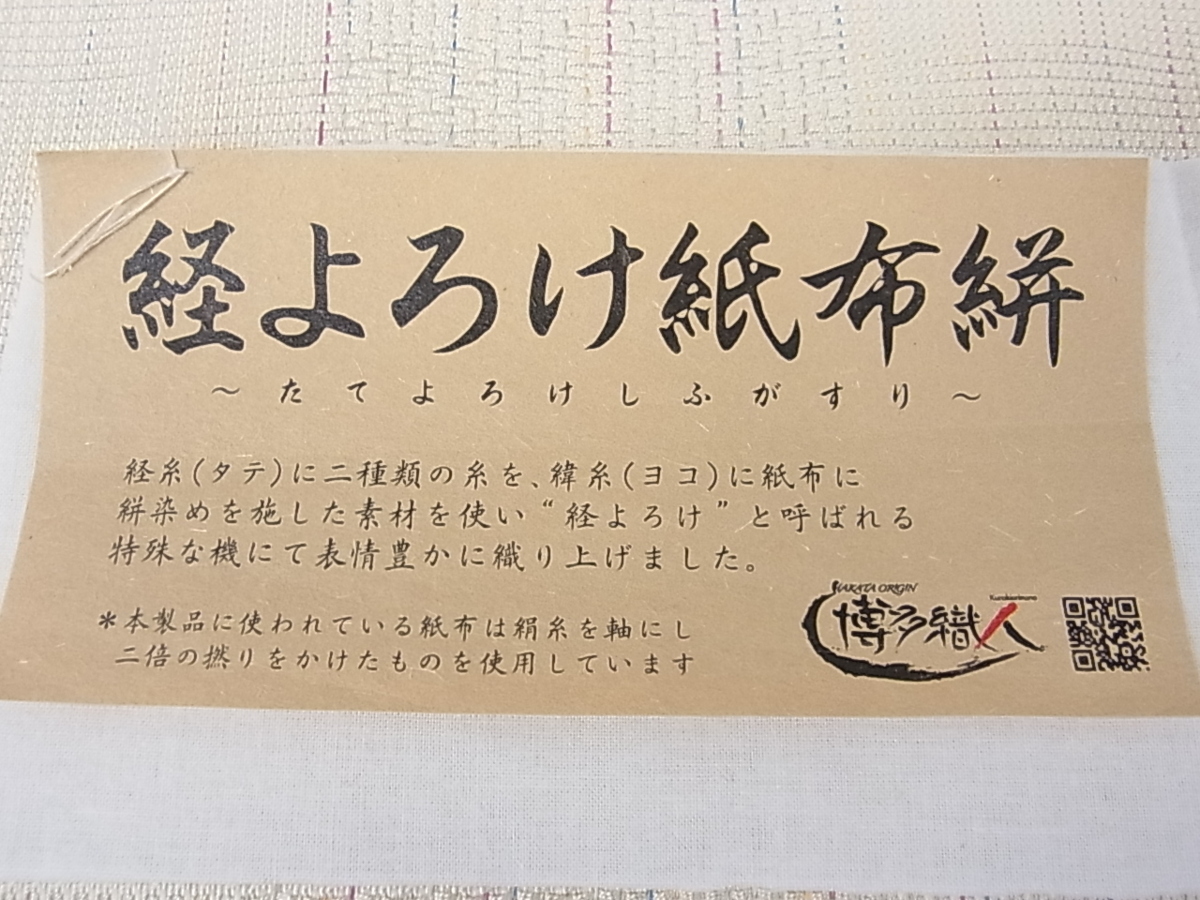 経よろけ紙布絣
～たてよろけしふがすり～
経糸(タテ)に二種類の糸を、緯糸(ヨコ)に紙布に
絣染めを施した素材を使い“経よろけ”と呼ばれる
特殊な機にて表情豊かに織り上げました。
＊本製品に使われている紙布は絹糸を軸にし
二倍の撚りをかけたものを使用しています
HAKATA ORIGIN
博多織人